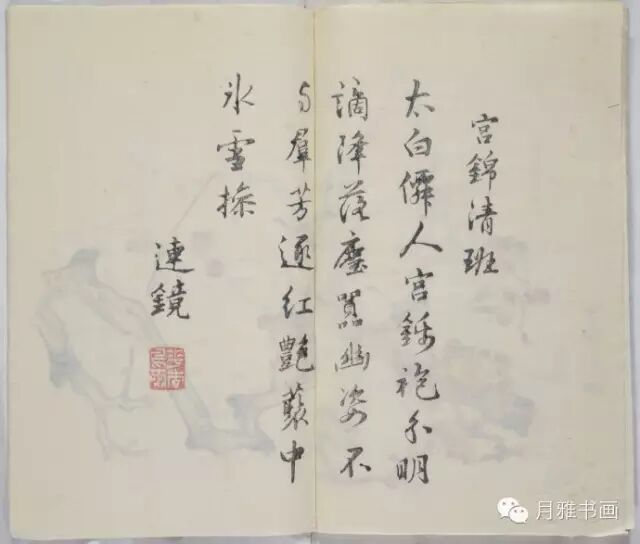 宮錦清班
太白僊人宮錦袍分明
謫降落塵囂幽姿不
与羣芳逐紅艷藂中
氷雪操
連鏡
月雅书画